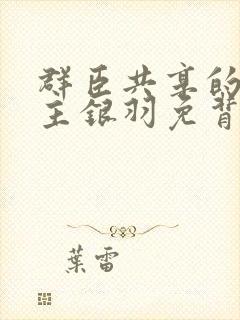 群臣共享的
主银羽免背
葉雷